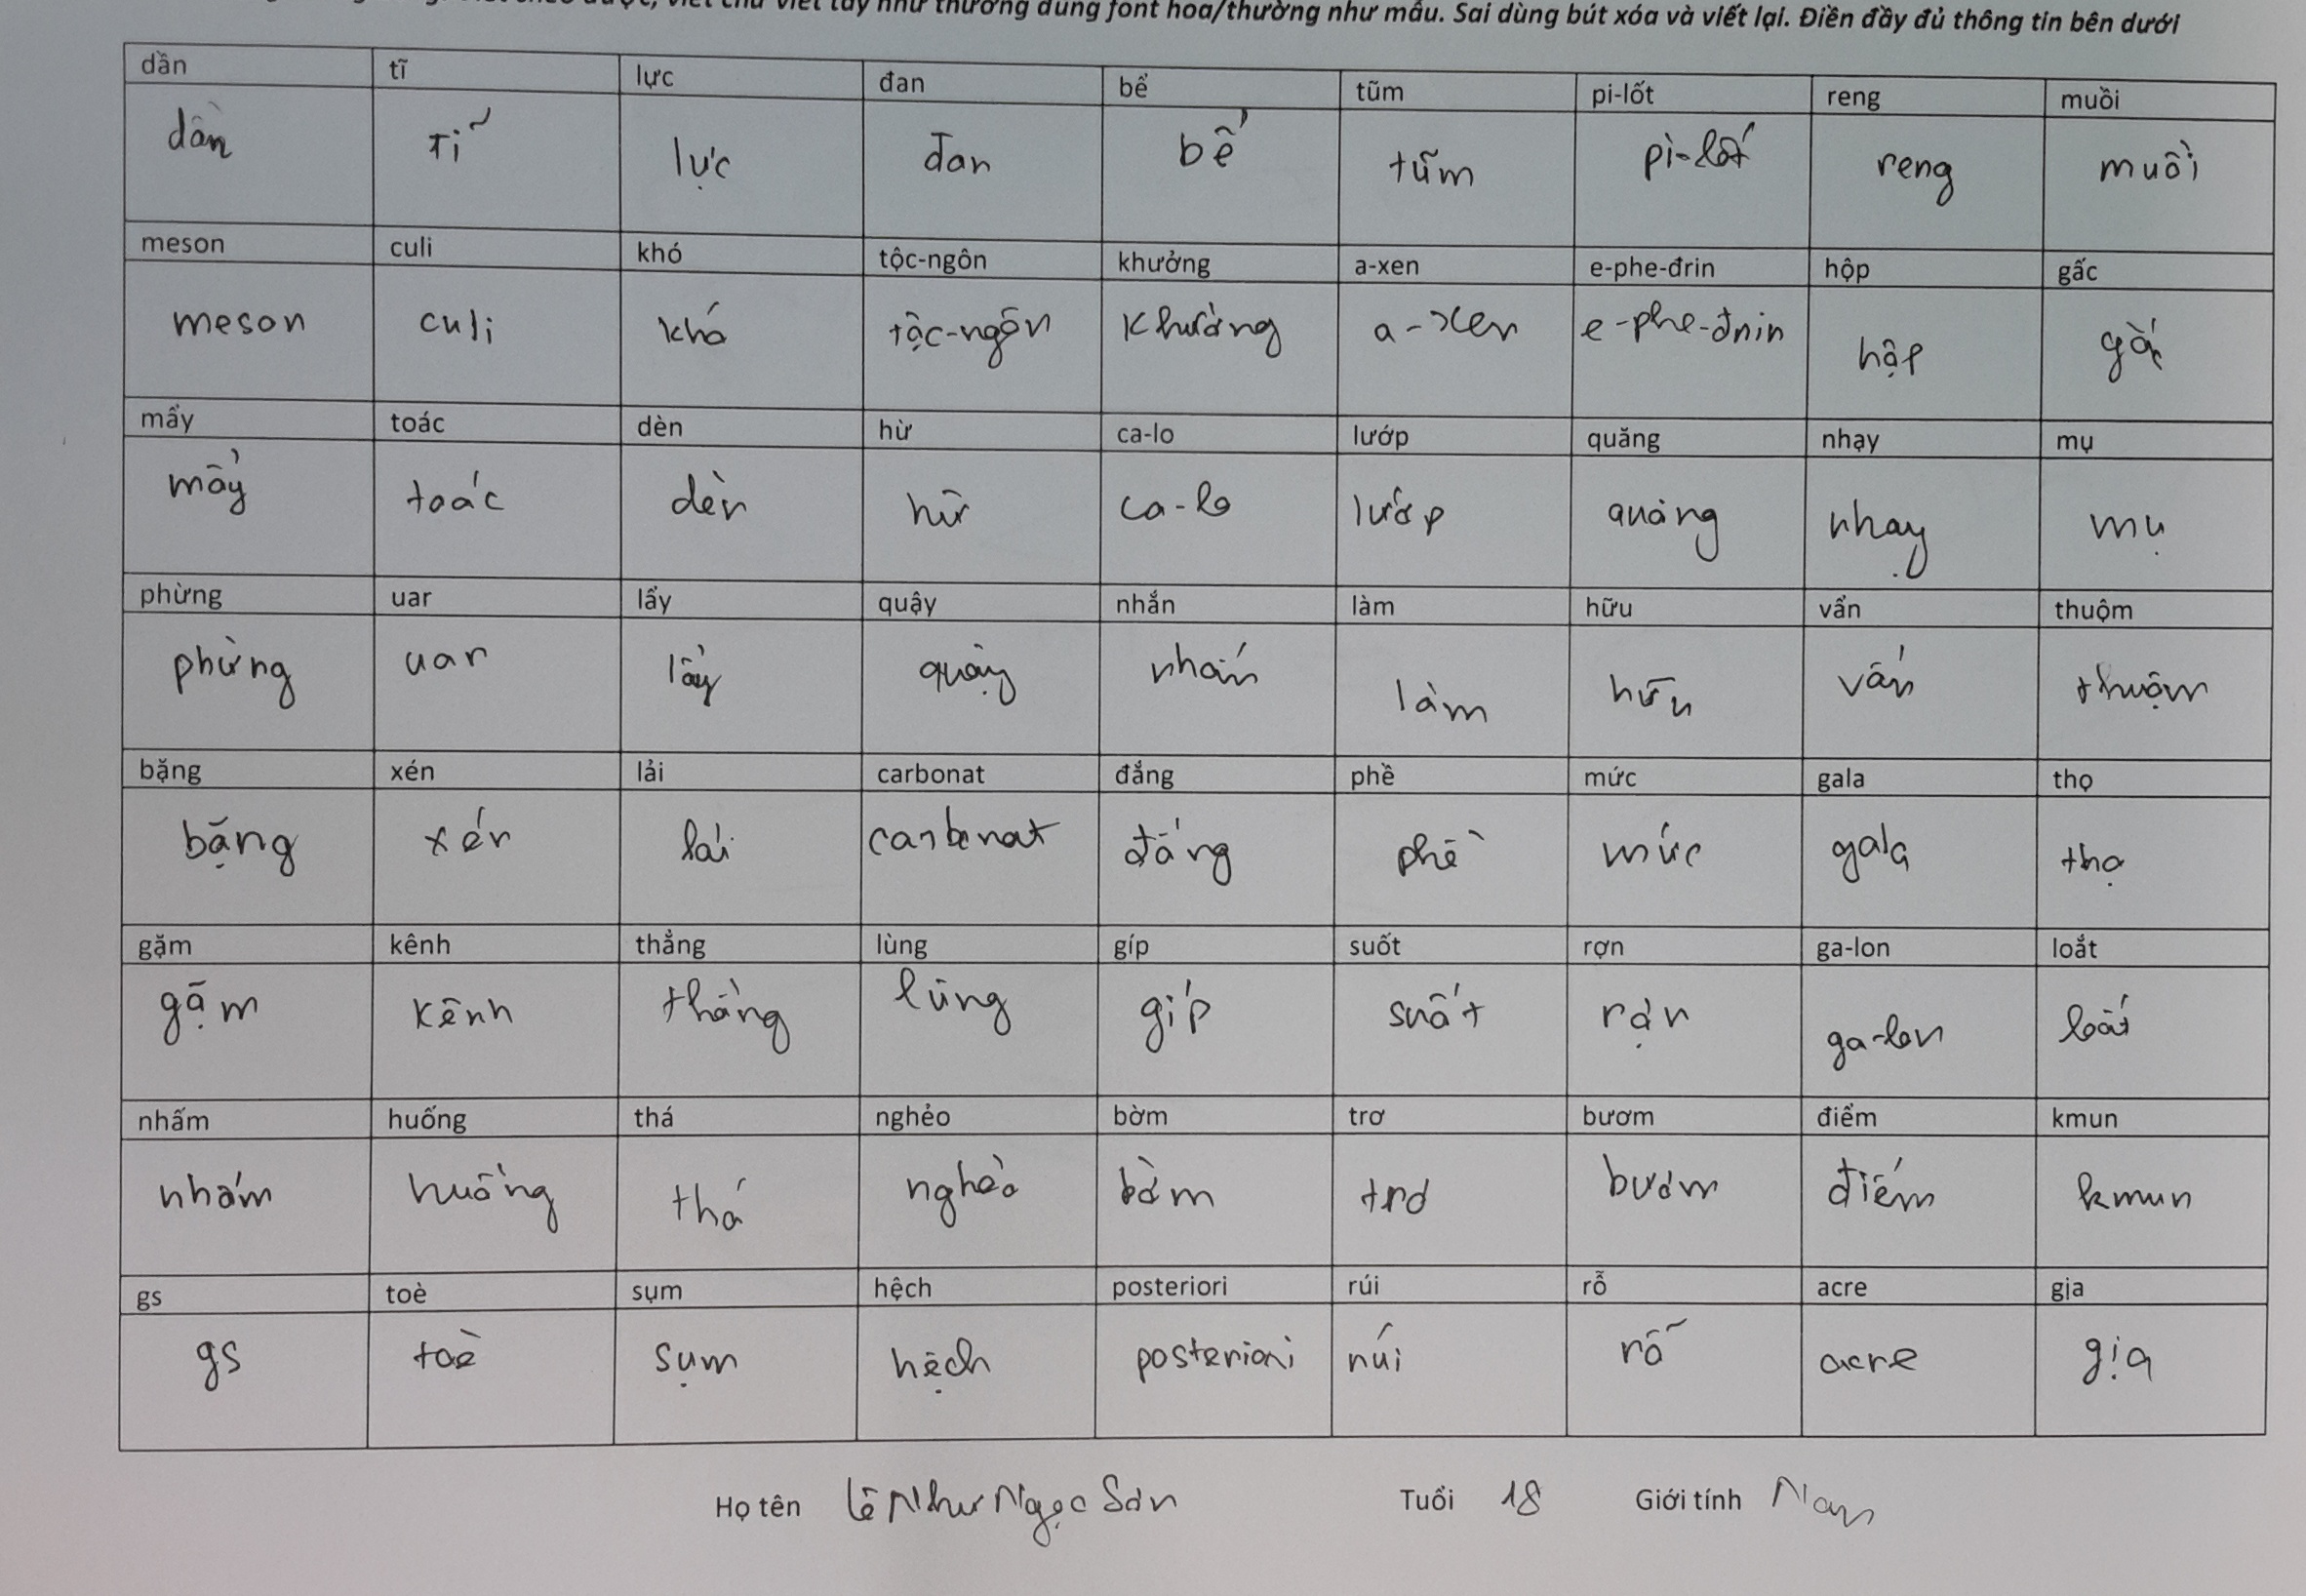 viết chữ viết tay như thường dùng font hoa/thường như mẫu. Sai dùng bút xóa và viết lại. Điền đầy đủ thông tin bên dưới
dần tĩ lực đan bể tũm pi-lốt reng muồi
dần tĩ lực đan bể tũm pi-lốt reng muồi
meson culi khó tộc-ngôn khưởng a-xen e-phe-đrin hộp gấc
meson culi khó tộc-ngôn khưởng a-xen e-phe-đrin hộp gấc
mẩy toác dèn hừ ca-lo lướp quăng nhạy mụ
mẩy toác dèn hừ ca-lo lướp quăng nhạy mụ
phừng uar lẩy quậy nhắn làm hữu vẩn thuộm
phừng uar lẩy quậy nhắn làm hữu vẩn thuộm
bặng xén lải carbonat đắng phề mức gala thọ
bặng xén lải carbonat đắng phề mức gala thọ
gặm kênh thẳng lùng gíp suốt rợn ga-lon loắt
gặm kênh thẳng lùng gíp suốt rợn ga-lon loắt
nhấm huống thá nghẻo bờm trơ bươm điểm kmun
nhấm huống thá nghẻo bờm trơ bươm điểm kmun
gs toè sụm hệch posteriori rúi rỗ acre gịa
gs toè sụm hệch posteriori rúi rỗ acre gịa
Họ tên Lê Như Ngọc Sơn Tuổi 18 Giới tính Nam